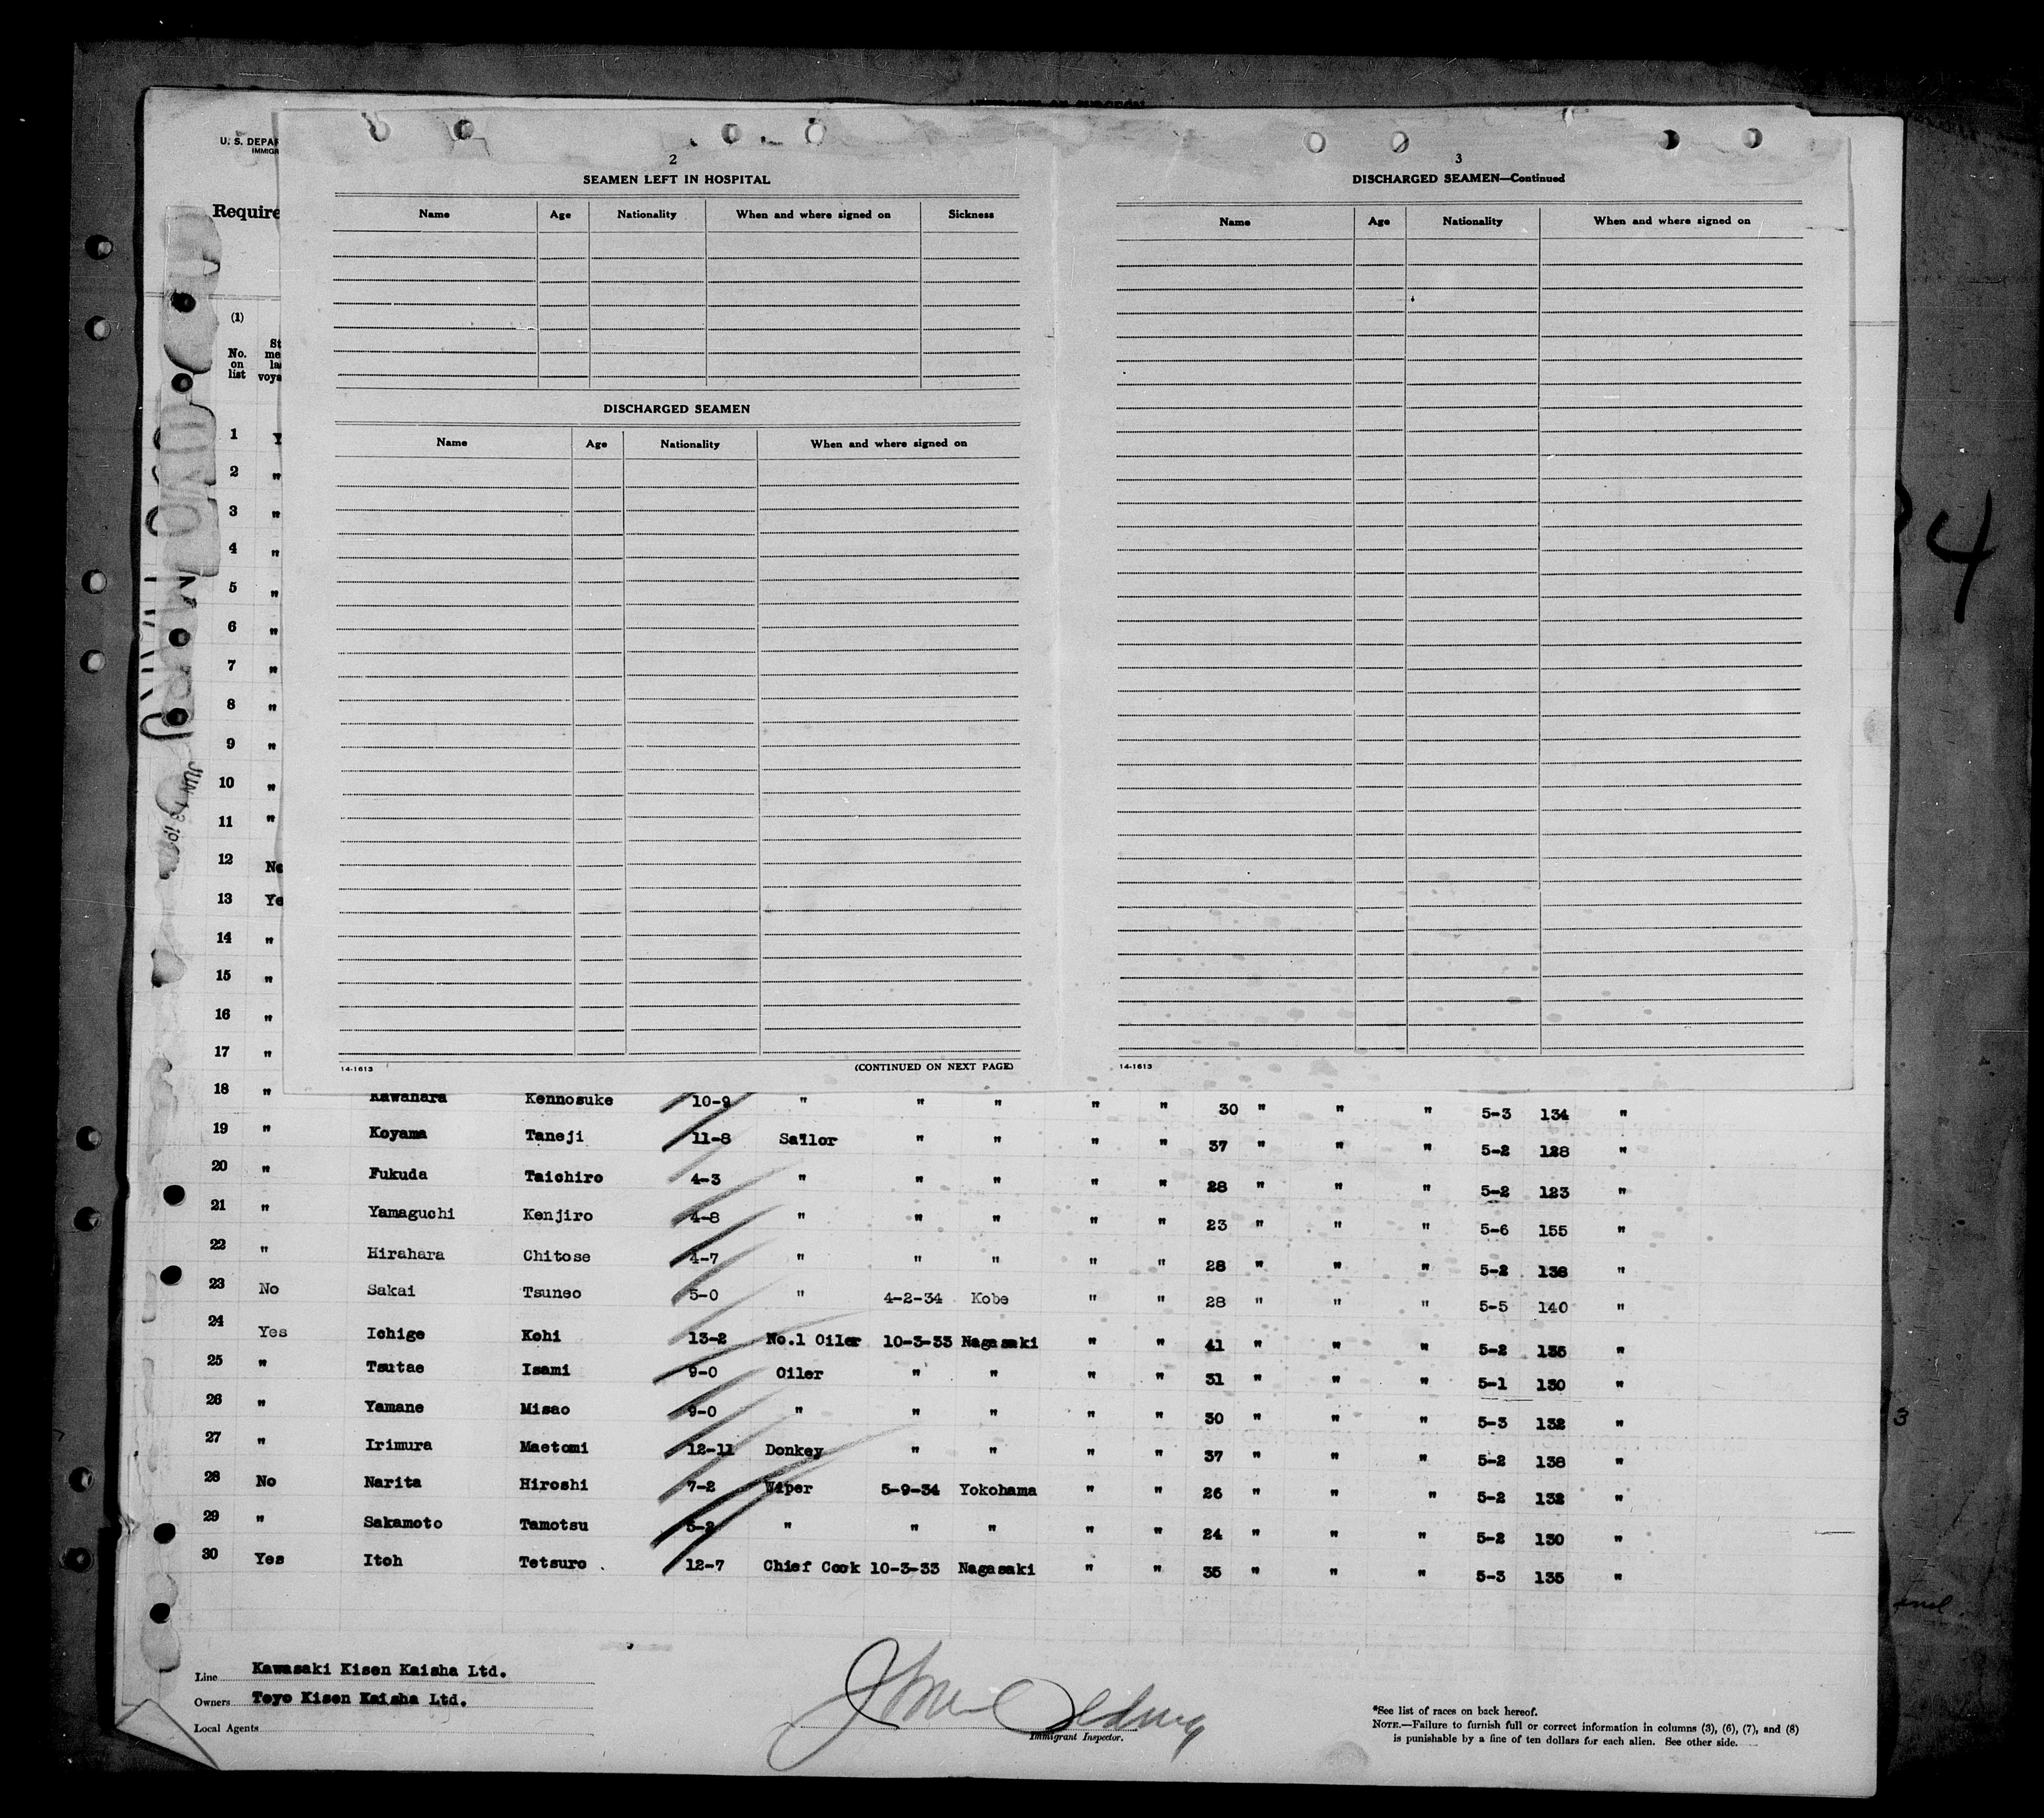 U. S. DEPAR
IMMIGR
Require
2
SEAMEN LEFT IN HOSPITAL
Name Age Nationality When and where signed on Sickness
DISCHARGED SEAMEN
Name Age Nationality When and where signed on
14-1613 (CONTINUED ON NEXT PAGE)
3
DISCHARGED SEAMEN—Continued
Name Age Nationality When and where signed on
14-1613
(1)
No. on list
St
me
la
voya
1 Y
2 "
3 "
4 "
5 "
6 "
7 "
8 "
9 "
10 "
11 "
12 No
13 Ye
14 "
15 "
16 "
17 "
18 " Kawahara Kennosuke 10-9 " " " " " 30 " " " 5-3 134 "
19 " Koyama Taneji 11-8 Sailor " " " " 37 " " " 5-2 128 "
20 " Fukuda Taichiro 4-3 " " " " " 28 " " " 5-2 123 "
21 " Yamaguchi Kenjiro 4-8 " " " " " 23 " " " 5-6 155 "
22 " Hirahara Chitose 4-7 " " " " " 28 " " " 5-2 138 "
23 No Sakai Tsuneo 5-0 " 4-2-34 Kobe " " 28 " " " 5-5 140 "
24 Yes Ichige Kohi 13-2 No.1 Oiler 10-3-33 Nagasaki " " 41 " " " 5-2 135 "
25 " Tsutae Isami 9-0 Oiler " " " " 31 " " " 5-1 130 "
26 " Yamane Misao 9-0 " " " " " 30 " " " 5-3 132 "
27 " Irimura Maetomi 12-11 Donkey " " " " 37 " " " 5-2 138 "
28 No Narita Hiroshi 7-2 Wiper 5-9-34 Yokohama " " 26 " " " 5-2 132 "
29 " Sakamoto Tamotsu 5-2 " " " " " 24 " " " 5-2 130 "
30 Yes Itoh Tetsuro 12-7 Chief Cook 10-3-33 Nagasaki " " 35 " " " 5-3 135 "
Line Kawasaki Kisen Kaisha Ltd.
Owners Toyo Kisen Kaisha Ltd.
Local Agents
Immigrant Inspector.
*See list of races on back hereof.
NOTE.—Failure to furnish full or correct information in columns (3), (6), (7), and (8)
is punishable by a fine of ten dollars for each alien. See other side.
4
3